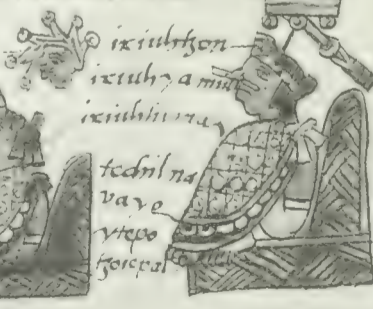 ixiuhtzon
ixiuhyamiuh
ixiuhtilma
techilna
vayo
ytepo
tzoicpal